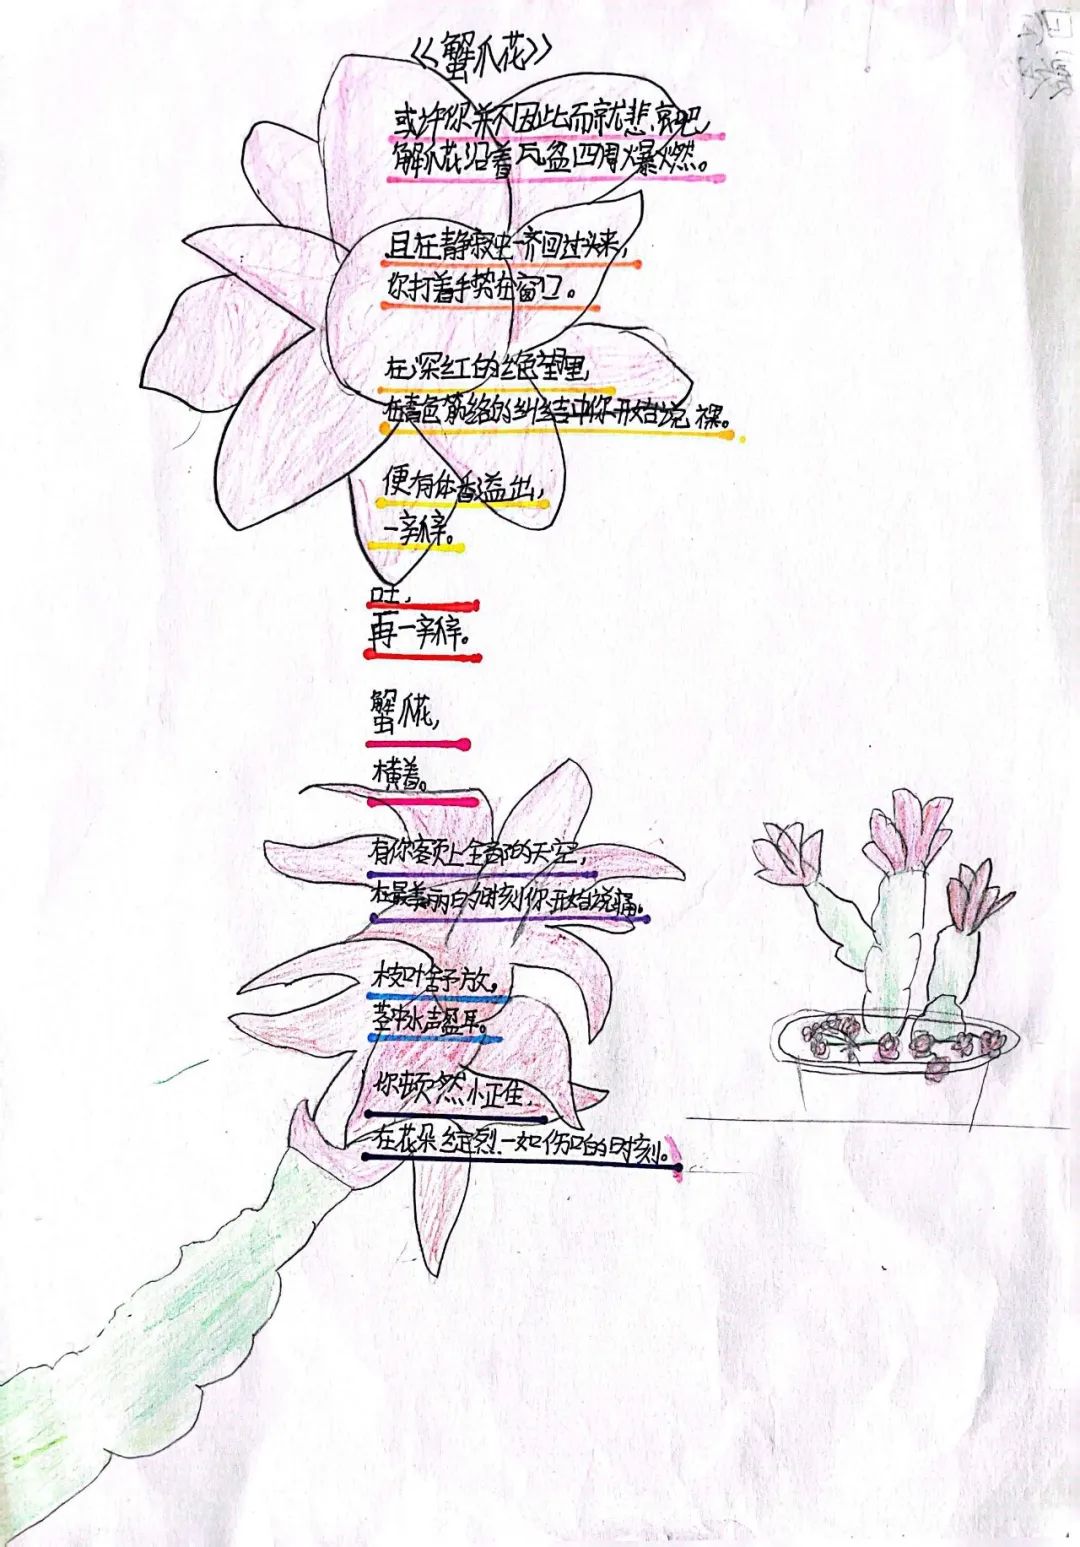 《蟹爪花》
或许你并不因此而就悲哀吧,
解爪花沿着瓦盆四周爆燃。
且在静寂中一齐回过头来,
你打着手势在窗口。
在深红的绝望里,
在青色筋络的纠结中你开始说裸。
便有体香溢出,
一瓣。
吐,
再一瓣。
蟹爪花,
横着。
有你额上全部的天空,
在最美丽的时刻你开始说痛。
枝叶舒放,
茎中水声盈耳。
你顿然怔住,
在花朵绽裂一如伤口的时刻。